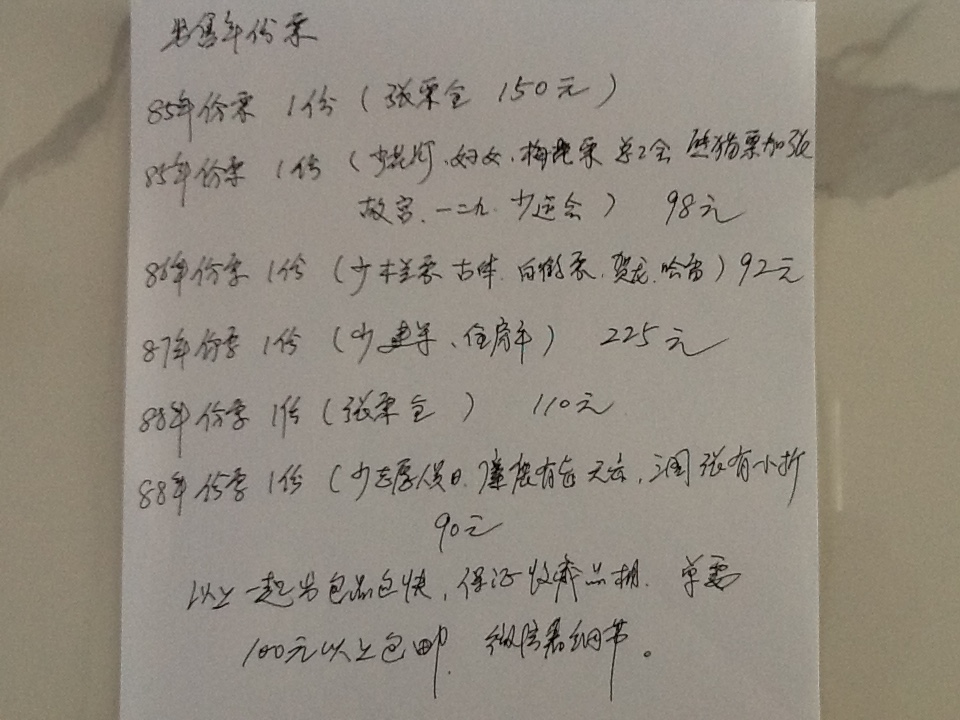 出售年份票
85年份票 1份 (张票全 150元)
85年份票 1份 (少花灯、妇女、梅花票 总工会 熊猫票加张
故宫、一二九、少运会) 98元
86年份票 1份 (少木兰票 古体、白鹤票、贺龙、哈雷) 92元
87年份票 1份 (少建军、住房年) 225元
88年份票 1份 (张票全) 110元
88年份票 1份 (少志愿人员日、 三国张有小折
90元
以上一起出包品包快,保证收寄品相. 单需
100元以上包邮. 看细节。